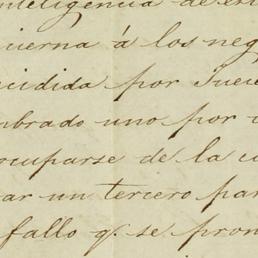 inteligencia de en
ierna á los neg
cidida por Juece
mbrado uno por
ocuparse de la c
ar un tercero par
fallo q. se pron